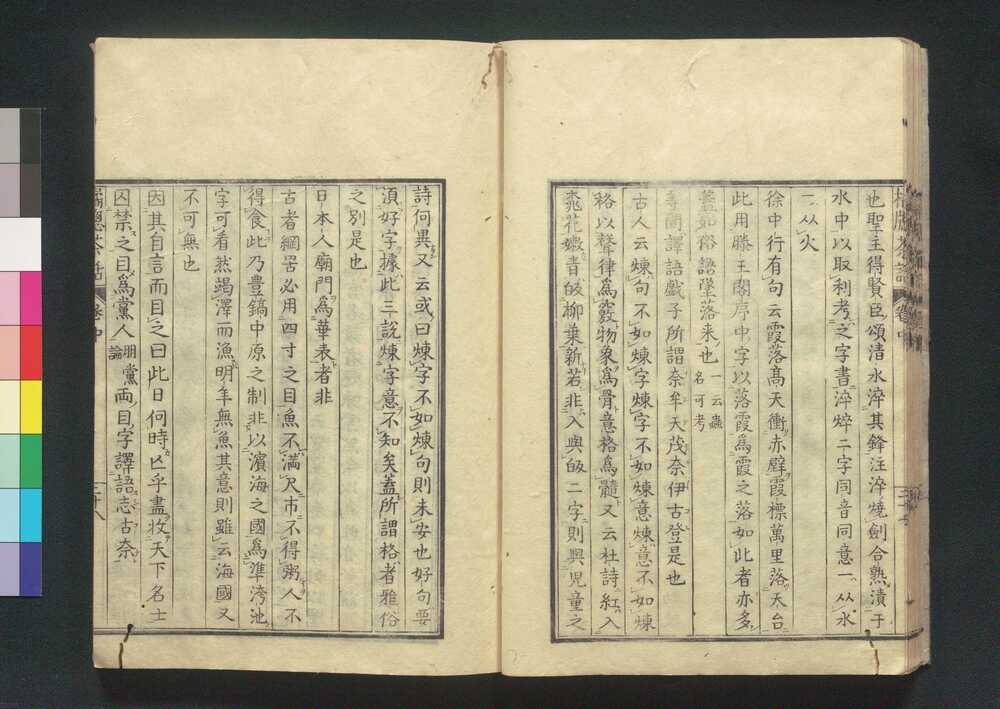 也聖主得賢臣頌清水淬其鋒注淬燒劍合熟漬于
水中以取利考之字書淬焠二字同音同意一从水
一从火
徐中行有句云霞落高天衝赤壁霞標萬里落天台
此用滕王閣序中字以落霞爲霞之落如此者亦多
蓋如俗語墜落来也一云蟲名可考
譯語戲子所謂奈牟大茂奈伊古登是也
古人云煉句不如煉字煉字不如煉意煉意不如煉
格以聲律爲竅物象爲骨意格爲髓又云杜詩紅入
桃花嫩青皈柳葉新若非入與皈二字則與児童之
詩何異又云或曰煉字不如煉句則未安也好句要
湏好字據此三說煉字意不知矣蓋所謂格者雅俗
之別是也
日本人廟門爲華表者非
古者網罟必用四寸之目魚不滿尺市不得粥人不
得食此乃豊鎬中原之制非以濱海之國爲準洿池
字可看然竭澤而漁明年無魚其意則雖云海國又
不可無也
因其自言而目之曰此日何時亾乎盡收天下名士
囚禁之目爲黨人朋黨論兩目字譯語志古奈
卷中
二十八